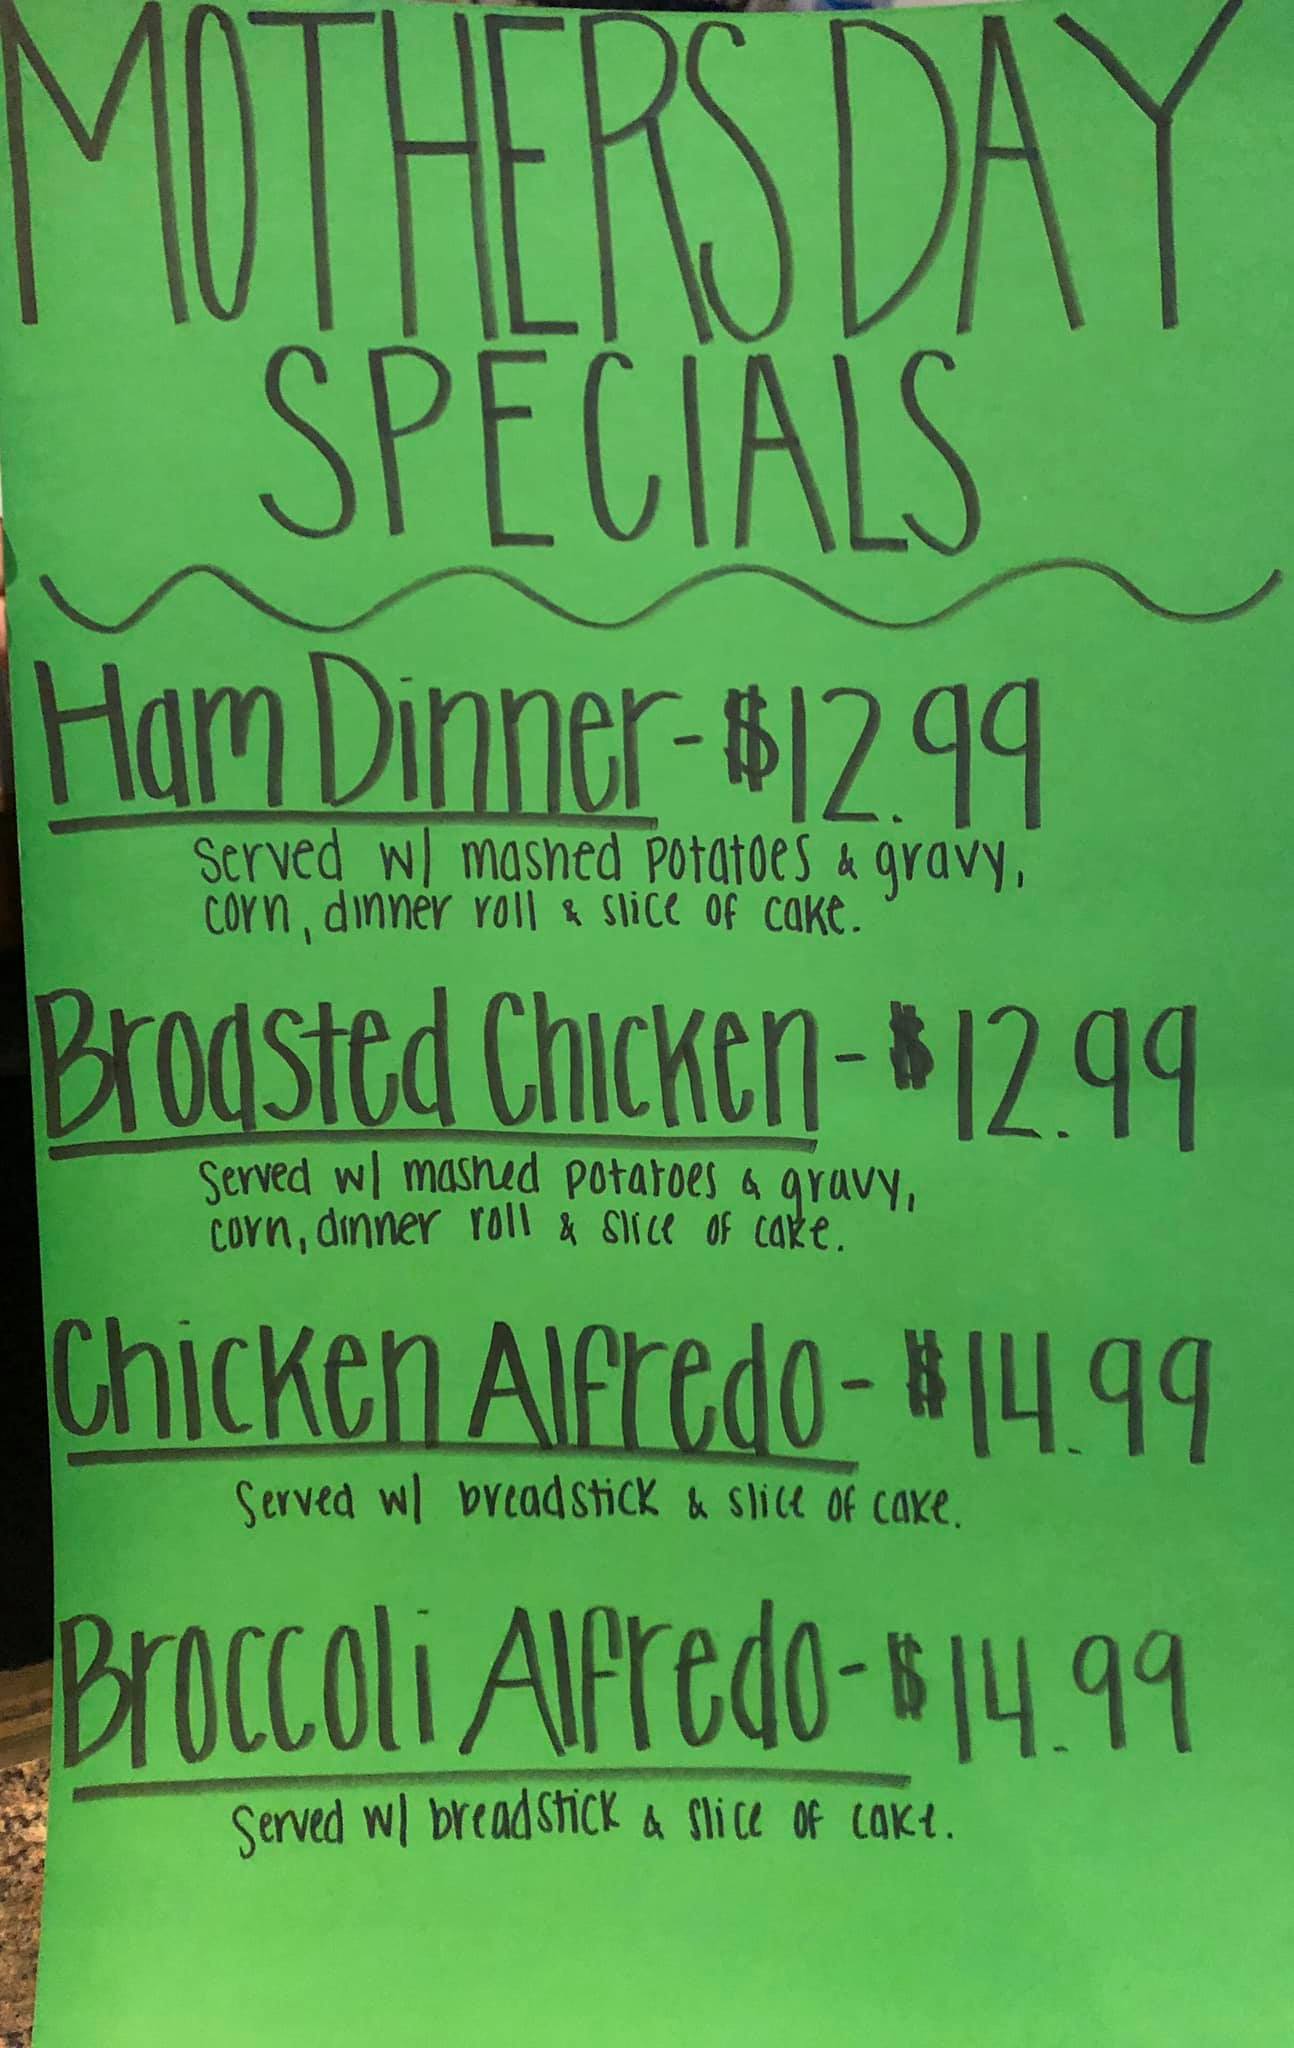 MOTHERS DAY
SPECIALS
Ham Dinner - $12.99
Served w/ mashed potatoes & gravy,
corn, dinner roll & slice of cake.
Broasted Chicken - $12.99
Served w/ mashed potatoes & gravy,
corn, dinner roll & slice of cake.
Chicken Alfredo - $14.99
Served w/ breadstick & slice of cake.
Broccoli Alfredo - $14.99
Served w/ breadstick & slice of cake.